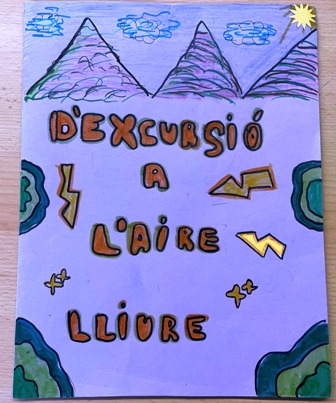 D'EXCURSIÓ
A
L'AIRE
LLIURE